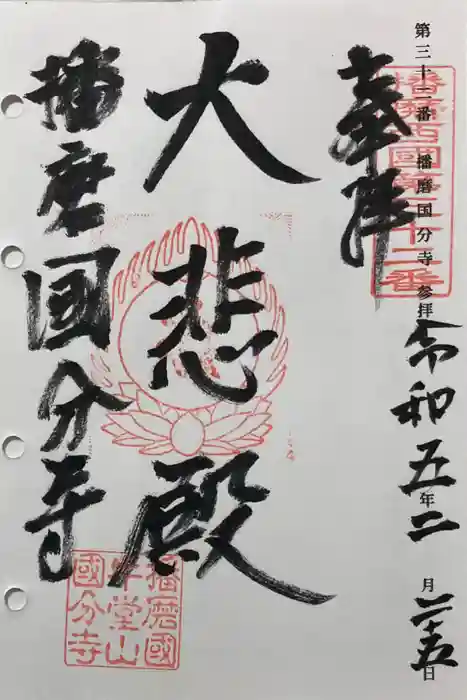 第三十二番 播磨国分寺 参拝 令和五年二月二十五日
播磨西國第三十二番
奉拝
大悲殿
播磨國分寺
播磨國
牛堂山
國分寺